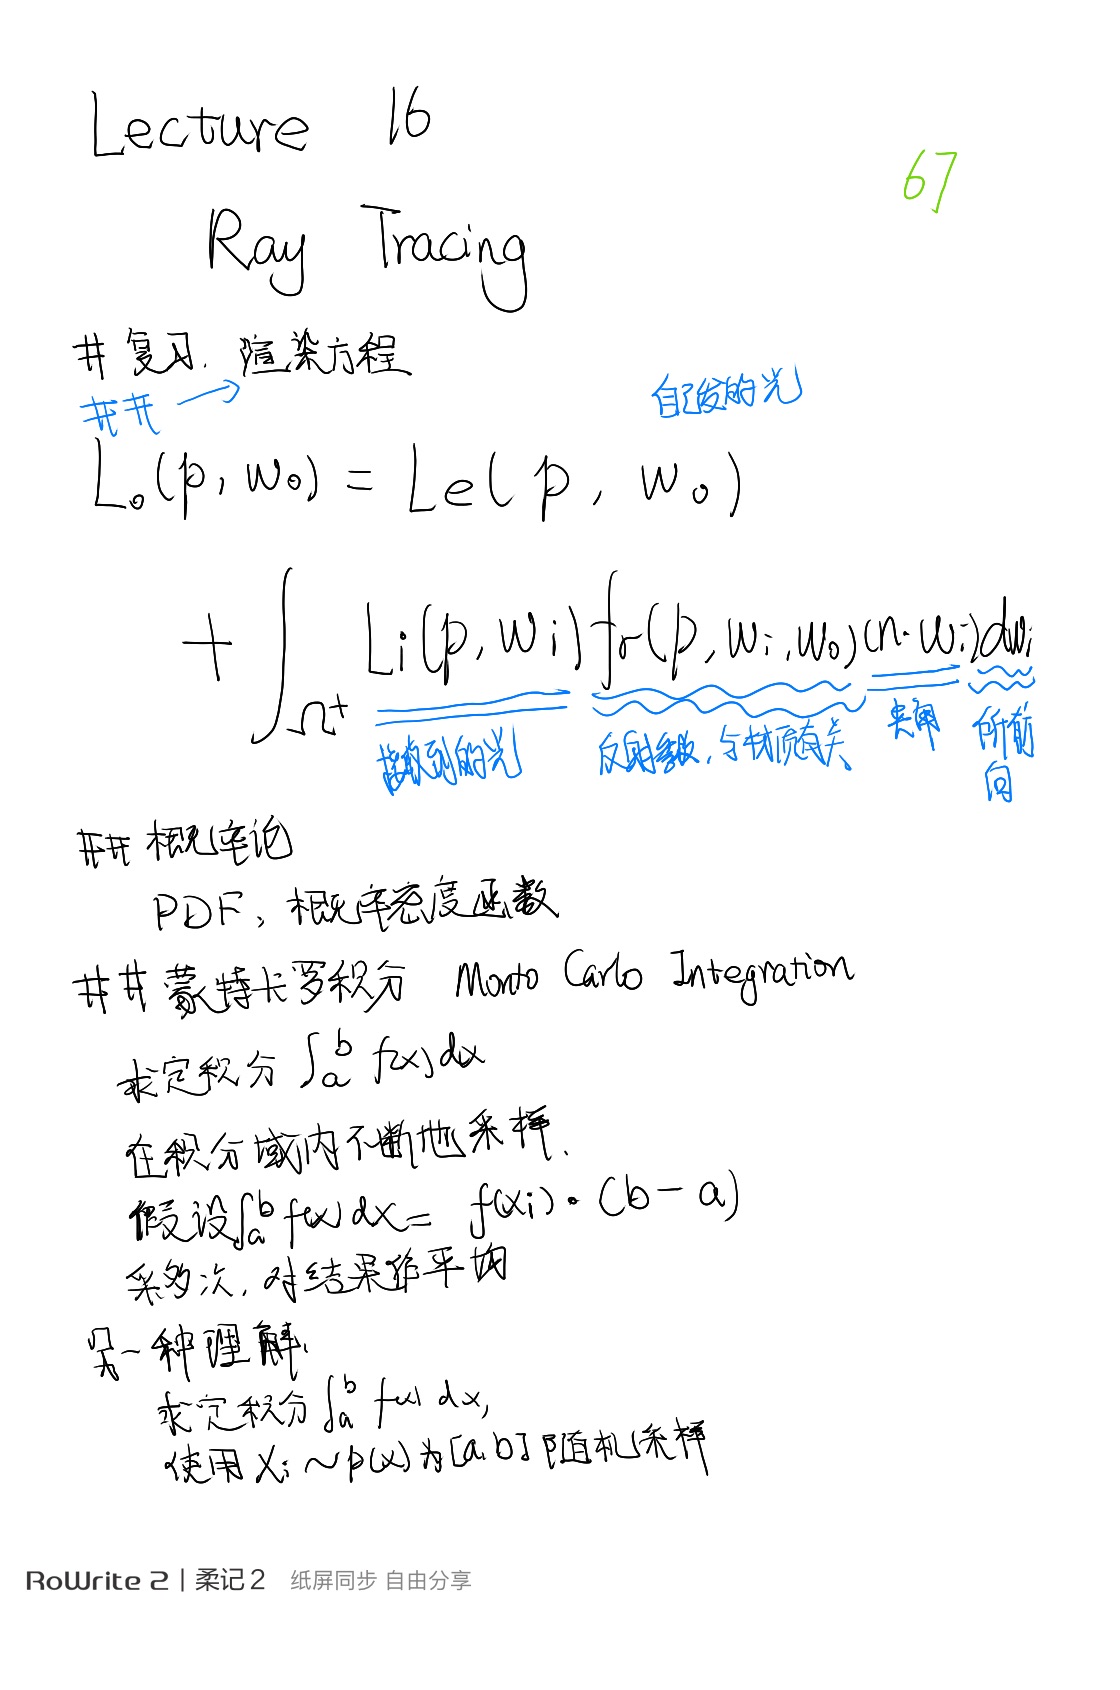 Lecture 16
67
Ray Tracing
# 复习. 渲染方程
## →
自己发的光
L₀(p, w₀) = Le(p, w₀)
+ ∫Ω⁺ Li(p, wi) fr(p, wi, w₀)(n·wi)dwi
接收到的光
反射参数,与材质有关
夹角
所有方向
## 概率论
PDF, 概率密度函数
## 蒙特卡罗积分 Monto Carlo Integration
求定积分 ∫ₐᵇ f(x)dx
在积分域内不断地采样.
假设∫ₐᵇ f(x)dx = f(xi)·(b-a)
采多次, 对结果作平均
另一种理解.
求定积分∫ₐᵇ f(x) dx,
使用 Xi ~ p(x) 为[a,b] 随机采样
RoWrite 2 | 柔记 2 纸屏同步 自由分享